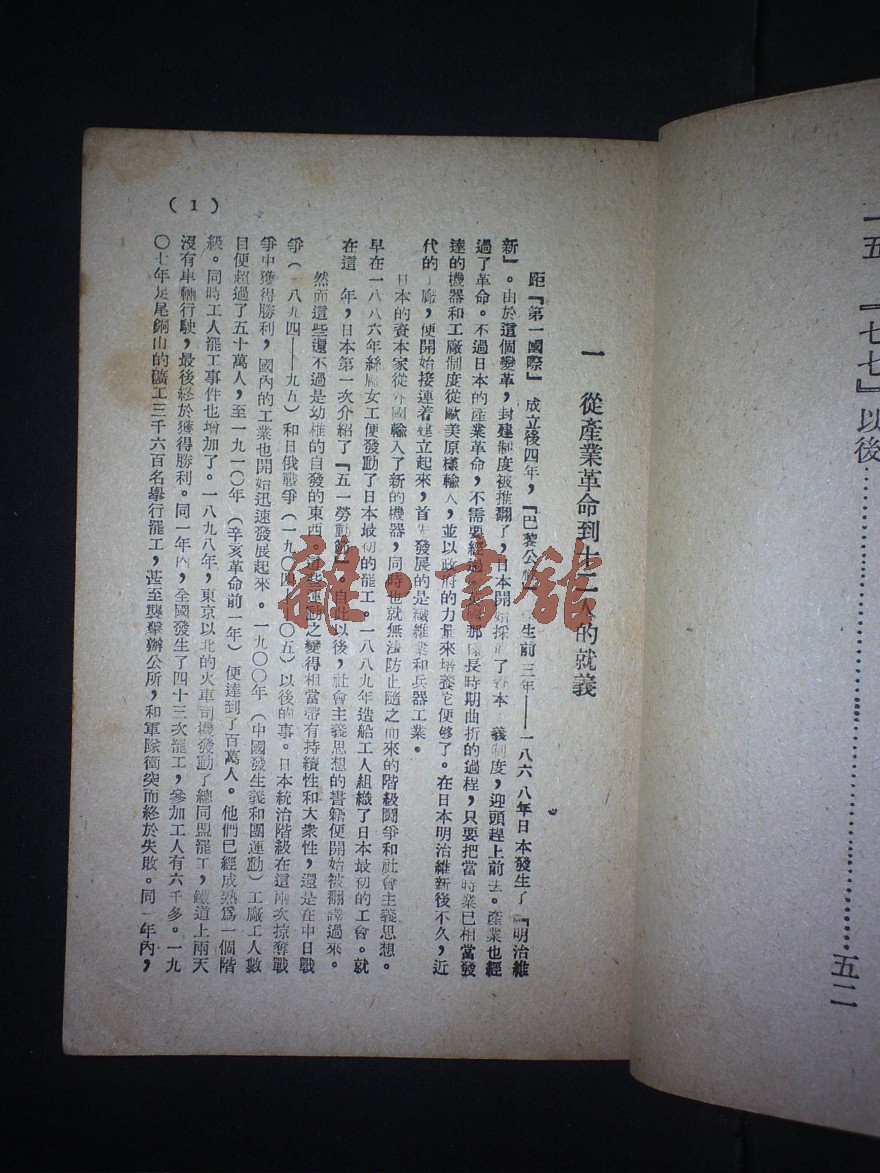 一五 『七七』以後……五二
一 從產業革命到十二人的就義
距『第一國際』成立後四年,『巴黎公 生前三年——一八六八年日本發生了『明治維
新』。由於這個變革,封建制度被推翻了,日本開始採 了資本 義制度,迎頭趕上前去。產業也經
過了革命。不過日本的產業革命,不需要經過 那 長時期曲折的過程,只要把當時業已相當發
達的機器和工廠制度從歐美原樣輸入,並以政府的力量來培養它便够了。在日本明治維新後不久,近
代的工廠,便開始接連着建立起來,首先發展的是纖維業和兵器工業。
日本的資本家從外國輸入了新的機器,同時也就無法防止隨之而來的階級鬪爭和社會主義思想。
早在一八八六年絲廠女工便發動了日本最初的罷工。一八八九年造船工人組織了日本最初的工會。就
在這 年,日本第一次介紹了『五一勞動節』。自此以後,社會主義思想的書籍便開始被翻譯過來。
然而這些還不過是幼稚的自發的東西。這些運動之變得相當帶有持續性和大衆性,還是在中日戰
爭(一八九四——九五)和日俄戰爭(一九〇四——〇五)以後的事。日本統治階級在這兩次掠奪戰
爭中獲得勝利,國內的工業也開始迅速發展起來。一九〇〇年(中國發生義和團運動)工廠工人數
目便超過了五十萬人,至一九一〇年(辛亥革命前一年)便達到了百萬人。他們已經成熟爲一個階
級。同時工人罷工事件也增加了。一八九八年,東京以北的火車司機發動了總同盟罷工,鐵道上兩天
沒有車輛行駛,最後終於獲得勝利。同一年內,全國發生了四十三次罷工,參加工人有六千多。一九
〇七年足尾銅山的礦工三千六百名舉行罷工,甚至襲擊辦公所,和軍隊衝突而終於失敗。同一年內,
(1)
雜·書舘